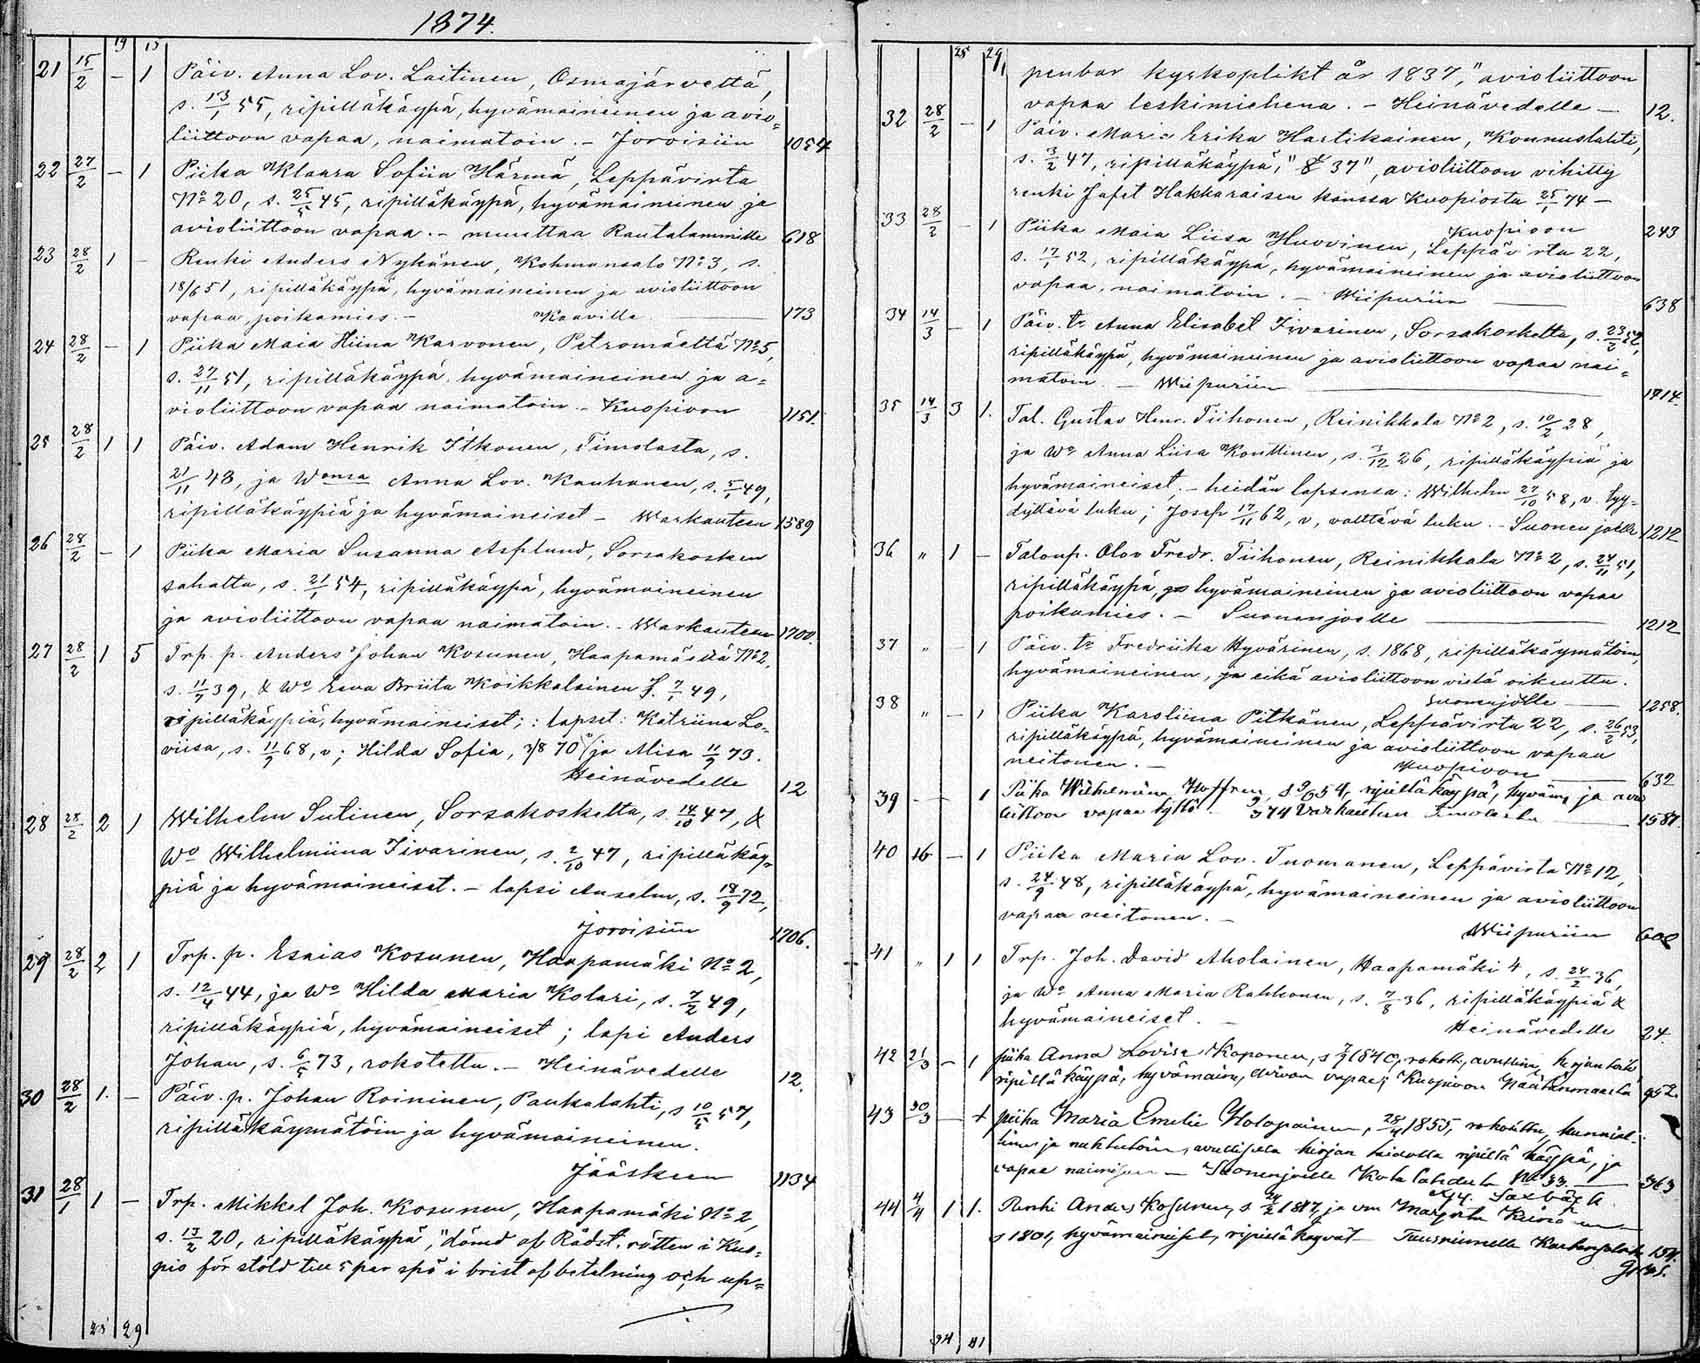 1874.
19 15
21 15/2 – 1 Päiv. Anna Lov. Laitinen, Osmajärveltä,
s. 13/1 55, ripilläkäypä, hyvämaineinen ja avio=
liittoon vapaa, naimatoin. – Joroisiin 1054
22 27/2 – 1 Piika Klaara Sofiia Härmä, Leppävirta
No 20, s. 25/5 45, ripilläkäypä, hyvämaineinen ja
avioliittoon vapaa. – muuttaa Rautalammille 618
23 28/2 1 – Renki Anders Nykänen, Kohmansalo No 3, s.
18/6 51, ripilläkäypä, hyvämaineinen ja avioliittoon
vapaa, poikamies. – Kaaville 173
24 28/2 – 1 Piika Maia Stiina Karvonen, Petromäeltä No 5,
s. 27/11 51, ripilläkäypä, hyvämaineinen ja a=
violiittoon vapaa naimatoin. – Kuopioon 1151.
25 28/2 1 1 Päiv. Adam Henrik Itkonen, Timolasta, s.
21/11 48, ja Wonsa Anna Lov. Kauhanen, s. 5/1 49,
ripilläkäypiä ja hyvämaineiset – Warkauteen 1589
26 28/2 – 1 Piika Maria Susanna Asplund, Sorsakosken
sahalta, s. 21/1 54, ripilläkäypä, hyvämaineinen
ja avioliittoon vapaa naimatoin. – Warkauteen 1700
27 28/2 1 5 Trp. p. Anders Johan Kosunen, Haapamäeltä No 2,
s. 11/7 39, & Wo Eeva Briita Koikkalainen s. 7/1 49,
ripilläkäypiä, hyvämaineiset; : lapset: Katriina Lo-
viisa, s. 11/9 68, v; Hilda Sofia, 3/8 70 ja Miina 11/9 73.
Heinävedelle 12
28 28/2 2 1 Wilhelm Sutinen, Sorsakoskelta, s. 14/10 47, &
Wo Wilhelmiina Iivarinen, s. 2/10 47, ripilläkäy-
piä ja hyvämaineiset. – lapsi Anselm, s. 18/9 72,
Joroisiin 1706.
29 28/2 2 1 Trp. p. Esaias Kosunen, Haapamäki No 2,
s. 12/4 44, ja Wo Hilda Maria Kolari, s. 7/2 49,
ripilläkäypiä, hyvämaineiset; lapi Anders
Johan, s. 6/5 73, rokotettu. – Heinävedelle 12.
30 28/2 1. – Päiv. p. Johan Roininen, Paukalahti, s 10/5 57,
ripilläkäymätöin ja hyvämaineinen.
Jääskeen 1134
31 28/1 1 – Trp. Mikkel Joh. Kosunen, Haapamäki No 2,
s. 13/2 20, ripilläkäypä, "dömd af Rådst. rätten i Kuo=
pio för stöld till 5 par spö i brist af betalning och up=
25 29
25 29
penbar kyrkoplikt år 1837," avioliittoon
vapaa leskimiehenä. – Heinävedelle – 12.
32 28/2 – 1 Päiv. Maria Erika Hartikainen, Konnuslahti,
s. 3/2 47, ripilläkäypä, "§ 37", avioliittoon vihitty
renki Jafet Hakkaraisen kanssa Kuopiosta 25/1 74 –
Kuopioon 243
33 28/2 – 1 Piika Maia Liisa Huovinen, Leppävirta 22,
s. 17/1 52, ripilläkäypä, hyvämaineinen ja avioliittoon
vapaa, naimatoin. – Wiipuriin 638
34 14/3 – 1 Päiv. tr Anna Elisabet Iivarinen, Sorsakoskelta, s. 23/2 52,
ripilläkäypä, hyvämaineinen ja avioliittoon vapaa nai=
matoin. – Wiipuriin 1714.
35 14/3 3 1. Tal. Gustav Henr. Tiihonen, Reinikkala No 2, s. 10/2 28,
ja Wo Anna Liisa Konttinen, s. 3/12 26, ripilläkäypiä ja
hyvämaineiset. – heidän lapsensa: Wilhelm 27/10 58, v. tyy-
dyttävä luku; Josef 17/11 62, v, välttävä luku. – Suonenjoelle 1212
36 " 1 – Taloup. Olov Fredr. Tiihonen, Reinikkala No 2, s. 24/11 51,
ripilläkäypä, hyvämaineinen ja avioliittoon vapaa
poikamies. – Suonenjoelle 1212
37 " – 1 Päiv. tr Fredriika Hyvärinen, s. 1868, ripilläkäymätöin,
hyvämaineinen, ja eikä avioliittoon vielä oikeuttu.
Suonenjoelle 1258.
38 " – 1 Piika Karoliina Pitkänen, Leppävirta 22, s. 26/2 53,
ripilläkäypä, hyvämaineinen ja avioliittoon vapaa
neitonen. – Kuopioon 632
39 – – 1 Piika Wilhelmina Hoffren, s 9/6 54, ripillä käypä, hyväm, ja avio
liittoon vapaa tyttö. 9/3 74 Varkauteen Timolasta 1587.
40 16 – 1 Piika Maria Lov. Tuomanen, Leppävirta No 12,
s. 24/9 48, ripilläkäypä, hyvämaineinen ja avioliittoon
vapaa neitonen. – Wiipuriin 602
41 " 1 1 Trp. Joh. David Aholainen, Haapamäki 4, s. 24/2 36,
ja Wo Anna Maria Rahkonen, s. 7/8 36, ripilläkäypiä &
hyvämaineiset. – Heinävedelle 24.
42 21/3 – 1 piika Anna Lovisa Koponen, s 7/9 1840, rokott, avullinen kirjan taito
ripillä käypä, hyvämain, avioon vapaa, Kuopioon Näätänmaasta 952.
43 30/3 – + piika Maria Emelie Holopainen, 28/4 1855, rokotettu, kunnial-
linen ja nuhteetoin, avullisella kirjan taidolla ripillä käypä, ja
vapaa naimisen – Suonenjoelle Kotalahdesta No 33. 363
44 4/4 1 1. Renki Anders Kosunen, s 24/2 1847, ja vm Margeta
s 1801, hyvämaineiset, ripillä käyvät
34 41